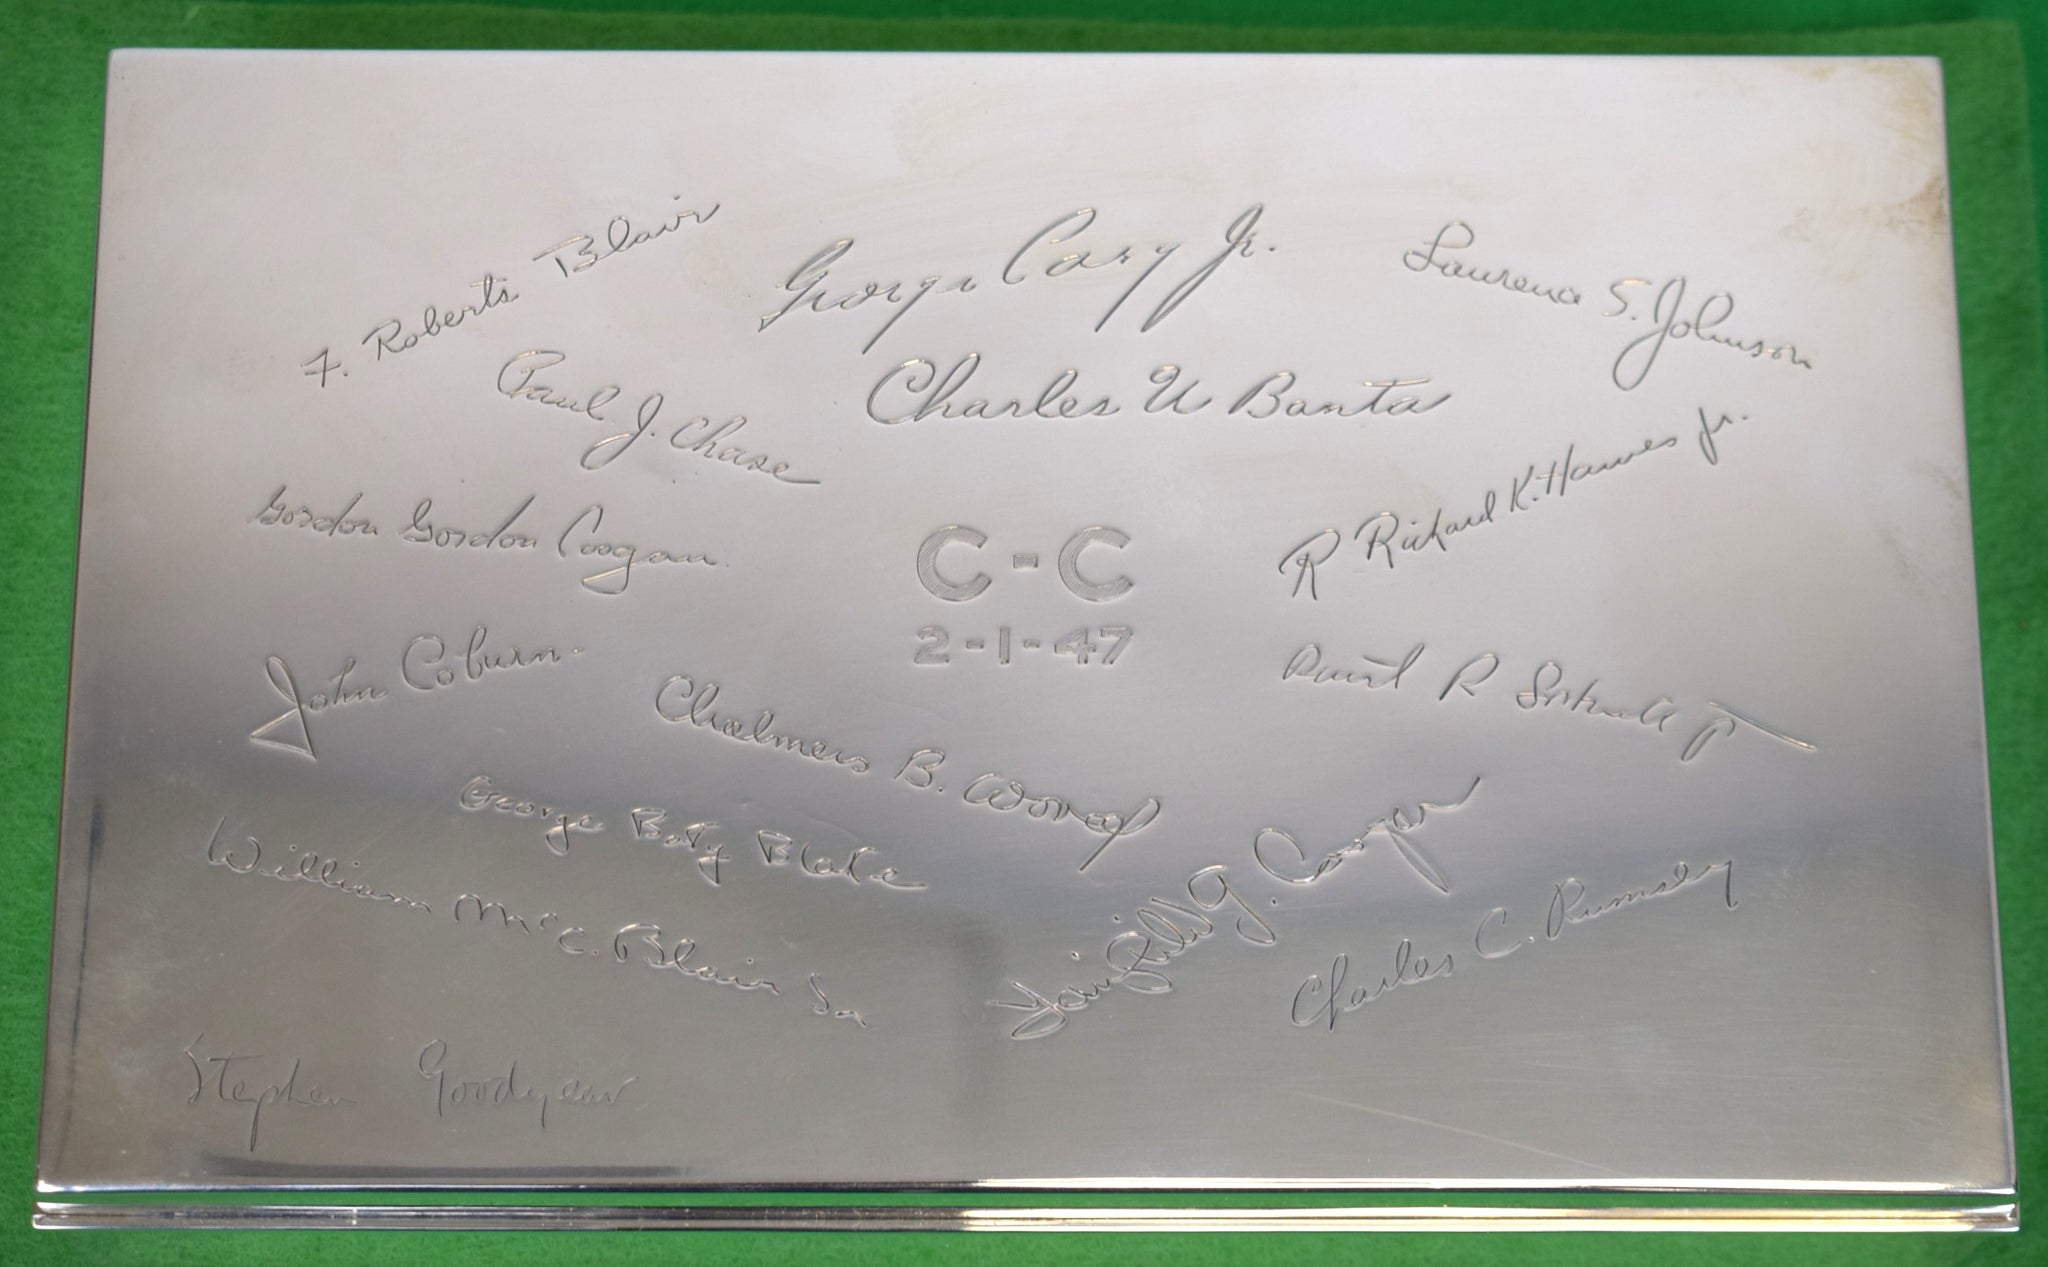 F. Roberts Blair
George Cary Jr.
Laurence S. Johnson
Paul J. Chase
Charles U Banta
R Richard K. Hawes Jr.
Gordon Gordon Coogan
C-C
2-1-47
John Coburn.
R
Chalmers B. Wood
George Boty Blake
J. Coogan
William McC. Blair Sr
Charles C. Rumsey
Stephen Goodyear